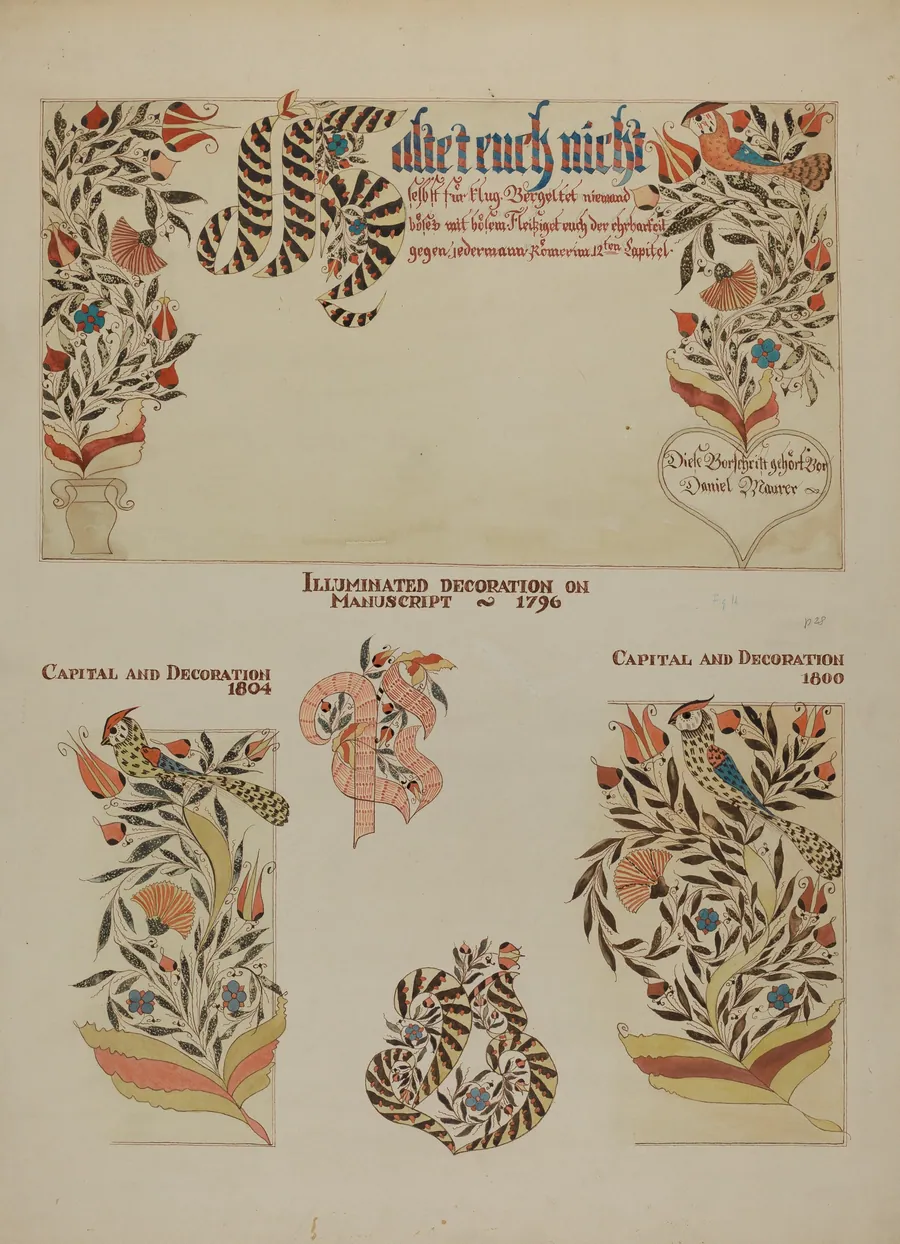 Haltet euch nicht
selbst für klug. Vergeltet niemand
böses mit bösem. Fleißiget euch der ehrbarkeit
gegen jedermann. Römer im 12ten Capitel.
Diese Vorschrift gehört Vor
Daniel Maurer
ILLUMINATED DECORATION ON
MANUSCRIPT ~ 1796
p 28
CAPITAL AND DECORATION
1804
CAPITAL AND DECORATION
1800